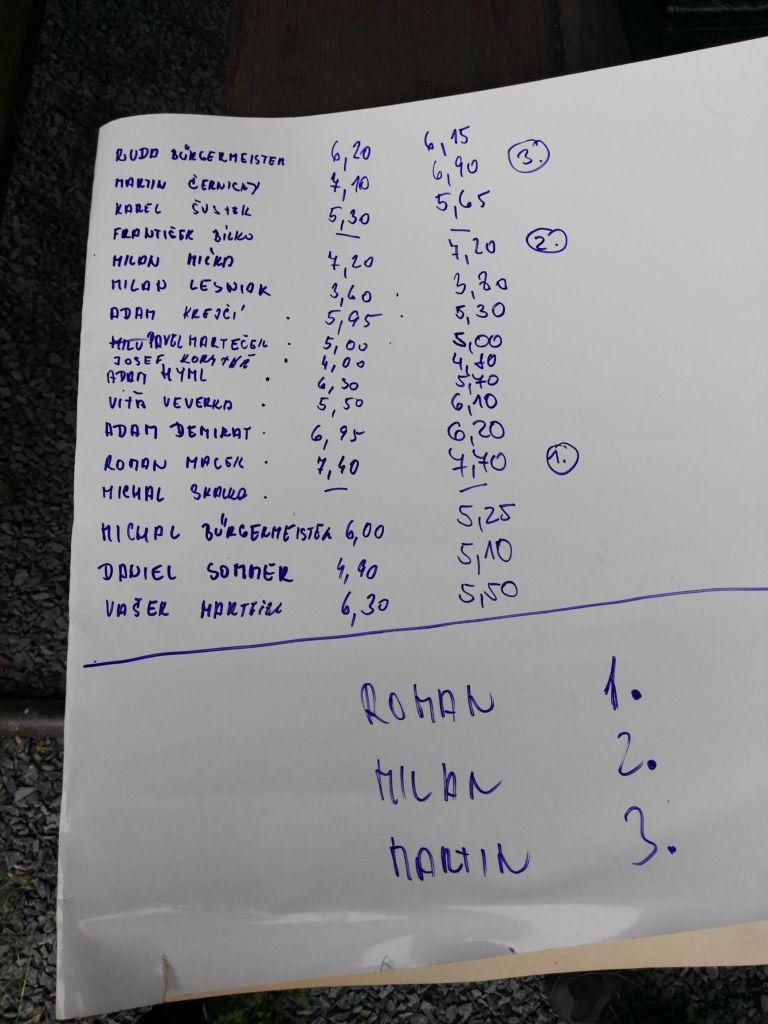 RUDA BÜRGERMEISTER 6,20 6,15
MARTIN ČERNICKÝ 7,10 6,90 3.
KAREL ŠUSTEK 5,30 5,65
FRANTIŠEK BÍLKO — —
MILAN MIČKA 7,20 7,20 2.
MILAN LESNIAK 3,60 3,80
ADAM KREJČÍ 5,95 5,30
PAVEL MARTEČEK 5,00 5,00
JOSEF 4,00 4,80
ADAM HYML 6,30 5,70
VÍŤA VEVERKA 5,50 6,10
ADAM DEMIRAT 6,95 6,20
ROMAN MACEK 7,40 7,70 1.
MICHAL SKALKA — —
MICHAL BÜRGERMEISTER 6,00 5,25
DANIEL SOMMER 4,90 5,10
VAŠEK 6,30 5,50
ROMAN 1.
MILAN 2.
MARTIN 3.